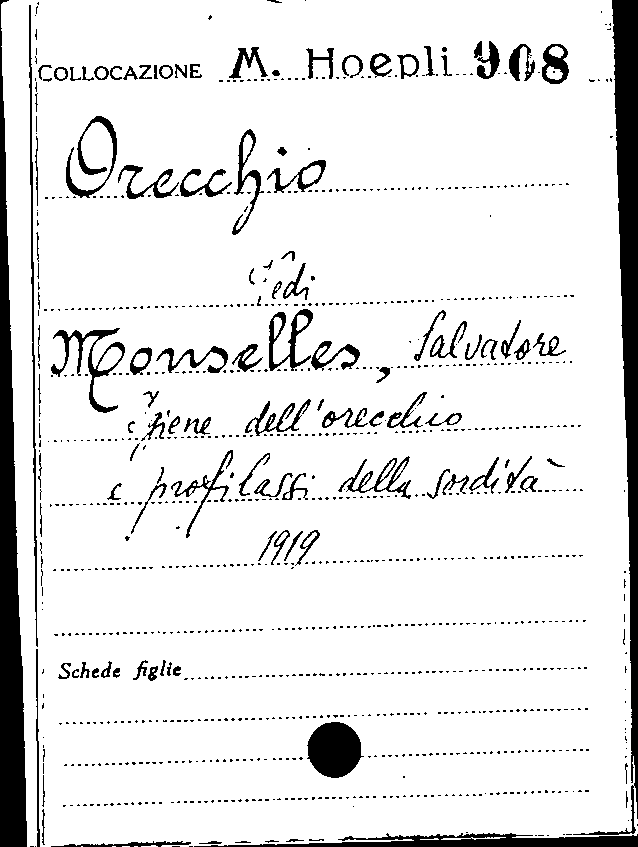 COLLOCAZIONE M. Hoepli 908
Orecchio
Vedi
Monselles, Salvatore
Igiene dell'orecchio
e profilassi della sordità
1919
Schede figlie